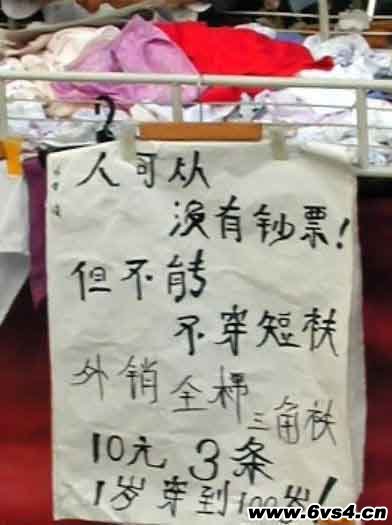 人可从
没有钞票!
但不能
不穿短衭
外销全棉
三角衭
10元 3条
1岁穿到100岁!
www.6vs4.cn